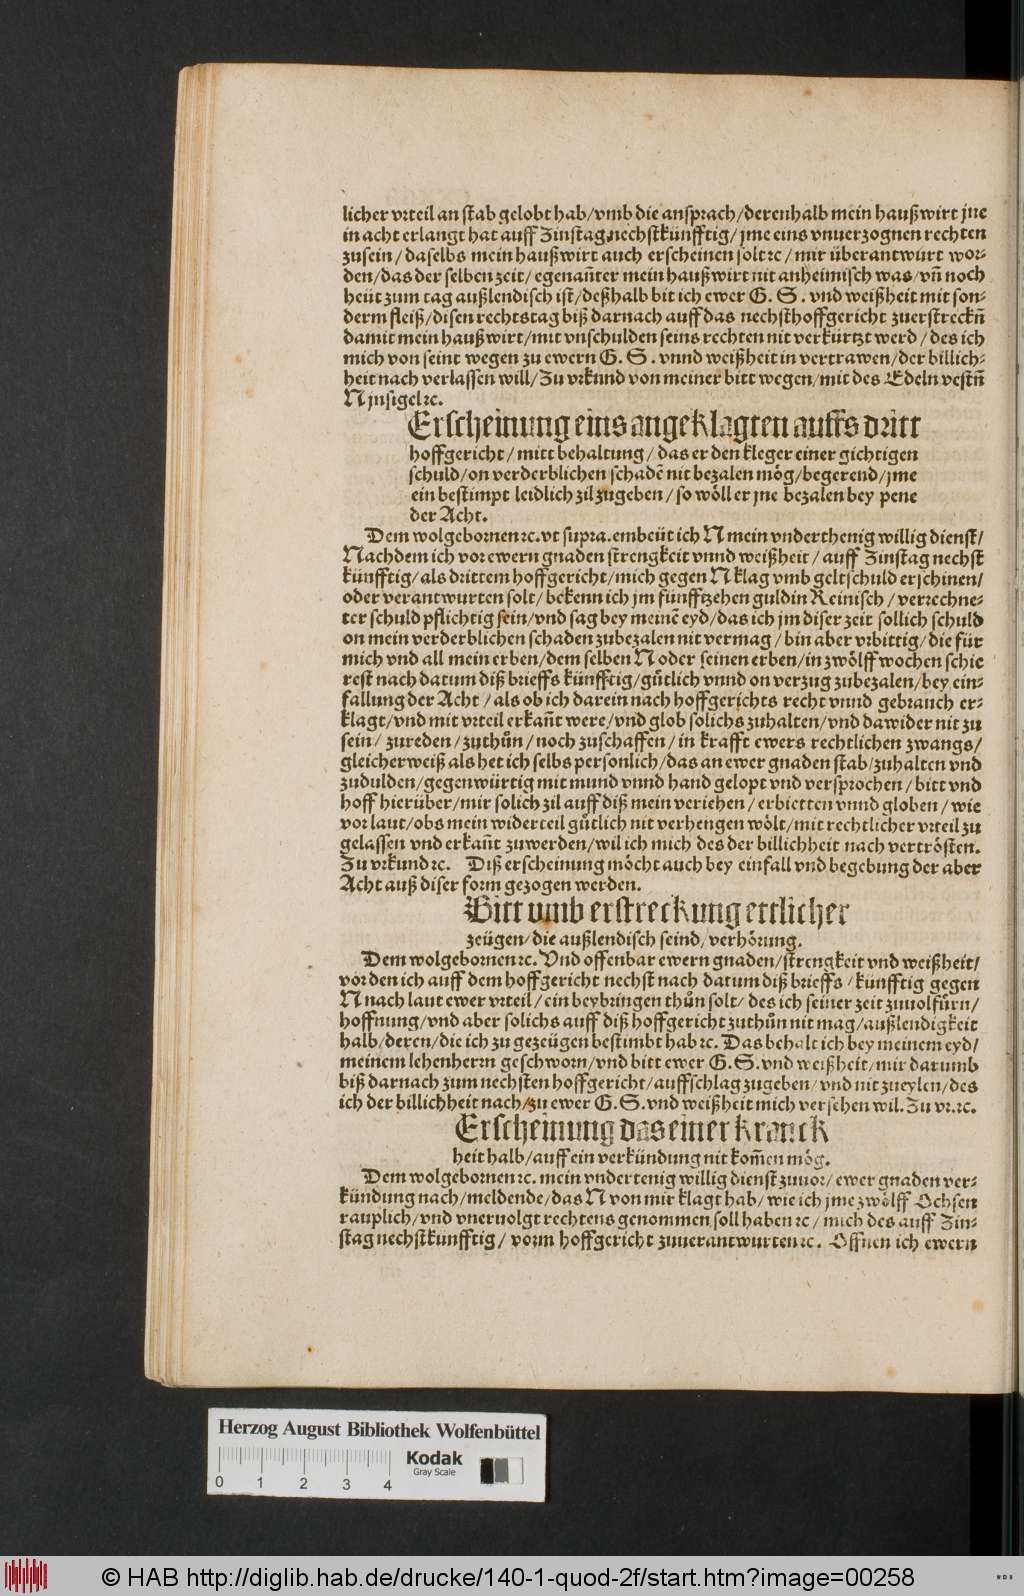 licher vrteil an stab gelobt hab/vmb die ansprach/derenhalb mein haußwirt jne
in acht erlangt hat auff Zinstag nechstkünfftig/ jme eins vnuerzognen rechten
zusein/ daselbs mein haußwirt auch erscheinen solt ꝛc/ mir überantwurt wor⸗
den/das der selben zeit/ egenañter mein haußwirt nit anheimisch was/vñ noch
heüt zum tag außlendisch ist/deßhalb bit ich ewer G. S. vnd weißheit mit son⸗
derm fleiß/disen rechtstag biß darnach auff das nechsthoffgericht zuerstreckñ
damit mein haußwirt/mit vnschulden seins rechten nit verkürtzt werd/ des ich
mich von seint wegen zu ewern G. S. vnnd weißheit in vertrawen/der billich⸗
heit nach verlassen will/Zu vrkund von meiner bitt wegen/mit des Edeln vestñ
N jnsigel ꝛc.
Erscheinung eins angeklagten auffs dritt
hoffgericht/ mitt behaltung/ das er den kleger einer gichtigen
schuld/on verderblichen schadẽ nit bezalen mög/begerend/jme
ein bestimpt leidlich zil zugeben/ so wöll er jne bezalen bey pene
der Acht.
Dem wolgebornen ꝛc. vt supra. embeüt ich N mein vnderthenig willig dienst/
Nachdem ich vor ewern gnaden strengkeit vnnd weißheit/ auff Zinstag nechst
künfftig/als drittem hoffgericht/mich gegen N klag vmb geltschuld erschinen/
oder verantwurten solt/ bekenn ich jm fünfftzehen guldin Reinisch/ verrechne⸗
ter schuld pflichtig sein/vnd sag bey meinẽ eyd/das ich jm diser zeit sollich schuld
on mein verderblichen schaden zubezalen nit vermag/ bin aber vrbittig/die für
mich vnd all mein erben/dem selben N oder seinen erben/in zwölff wochen schie
rest nach datum diß brieffs künfftig/gůtlich vnnd on verzug zubezalen/bey ein⸗
fallung der Acht/ als ob ich darein nach hoffgerichts recht vnnd gebrauch er⸗
klagt/vnd mit vrteil erkañt were/vnd glob solichs zuhalten/vnd dawider nit zu
sein/ zureden/ zuthůn/ noch zuschaffen/ in krafft ewers rechtlichen zwangs/
gleicherweiß als het ich selbs personlich/das an ewer gnaden stab/zuhalten vnd
zudulden/gegenwürtig mit mund vnnd hand gelopt vnd versprochen/ bitt vnd
hoff hierüber/mir solich zil auff diß mein veriehen/ erbietten vnnd globen/ wie
vor laut/obs mein widerteil gůtlich nit verhengen wölt/mit rechtlicher vrteil zu
gelassen vnd erkañt zuwerden/wil ich mich des der billichheit nach vertrösten.
Zu vrkund ꝛc. Diß erscheinung möcht auch bey einfall vnd begebung der aber
Acht auß diser form gezogen werden.
Bitt vmb erstreckung ettlicher
zeügen/die außlendisch seind/verhörung.
Dem wolgebornen ꝛc. Vnd offenbar ewern gnaden/strengkeit vnd weißheit/
vor den ich auff dem hoffgericht nechst nach datum diß brieffs/künfftig gegen
N nach laut ewer vrteil/ein beybringen thůn solt/ des ich seiner zeit zuuolfůrn/
hoffnung/vnd aber solichs auff diß hoffgericht zuthůn nit mag/außlendigkeit
halb/deren/die ich zu gezeügen bestimbt hab ꝛc. Das behalt ich bey meinem eyd/
meinem lehenherrn geschworn/vnd bitt ewer G. S. vnd weißheit/mir darumb
biß darnach zum nechsten hoffgericht/auffschlag zugeben/vnd nit zueylen/des
ich der billichheit nach/zu ewer G. S. vnd weißheit mich versehen wil. Zu vr. ꝛc.
Erscheinung das einer kranck
heit halb/auff ein verkündung nit kom̃en mög.
Dem wolgebornen ꝛc. mein vndertenig willig dienst zuuor/ewer gnaden ver⸗
kündung nach/meldende/das N von mir klagt hab/wie ich jme zwölff Ochsen
rauplich/vnd vneruolgt rechtens genommen soll haben ꝛc/ mich des auff Zin⸗
stag nechstkunfftig/ vorm hoffgericht zuuerantwurten ꝛc. Offnen ich ewern
Herzog August Bibliothek Wolfenbüttel
Kodak
Gray Scale
0 1 2 3 4
© HAB http://diglib.hab.de/drucke/140-1-quod-2f/start.htm?image=00258